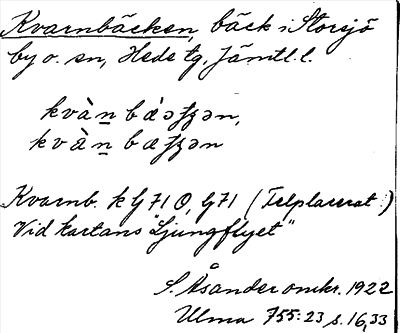 Kvarnbäcken, bäck i Storsjö
by o. sn, Hede tg, Jämtl. l.
kvàn̲ bǽəʃʒən,
kvæ̀n̲ bæʃʒən
Kvarnb. k G 71 O, G 71 (Felplacerat!)
Vid kartans "Ljungflyet"
S. Åsander omkr. 1922
Ulma 755:23 s. 16, 33